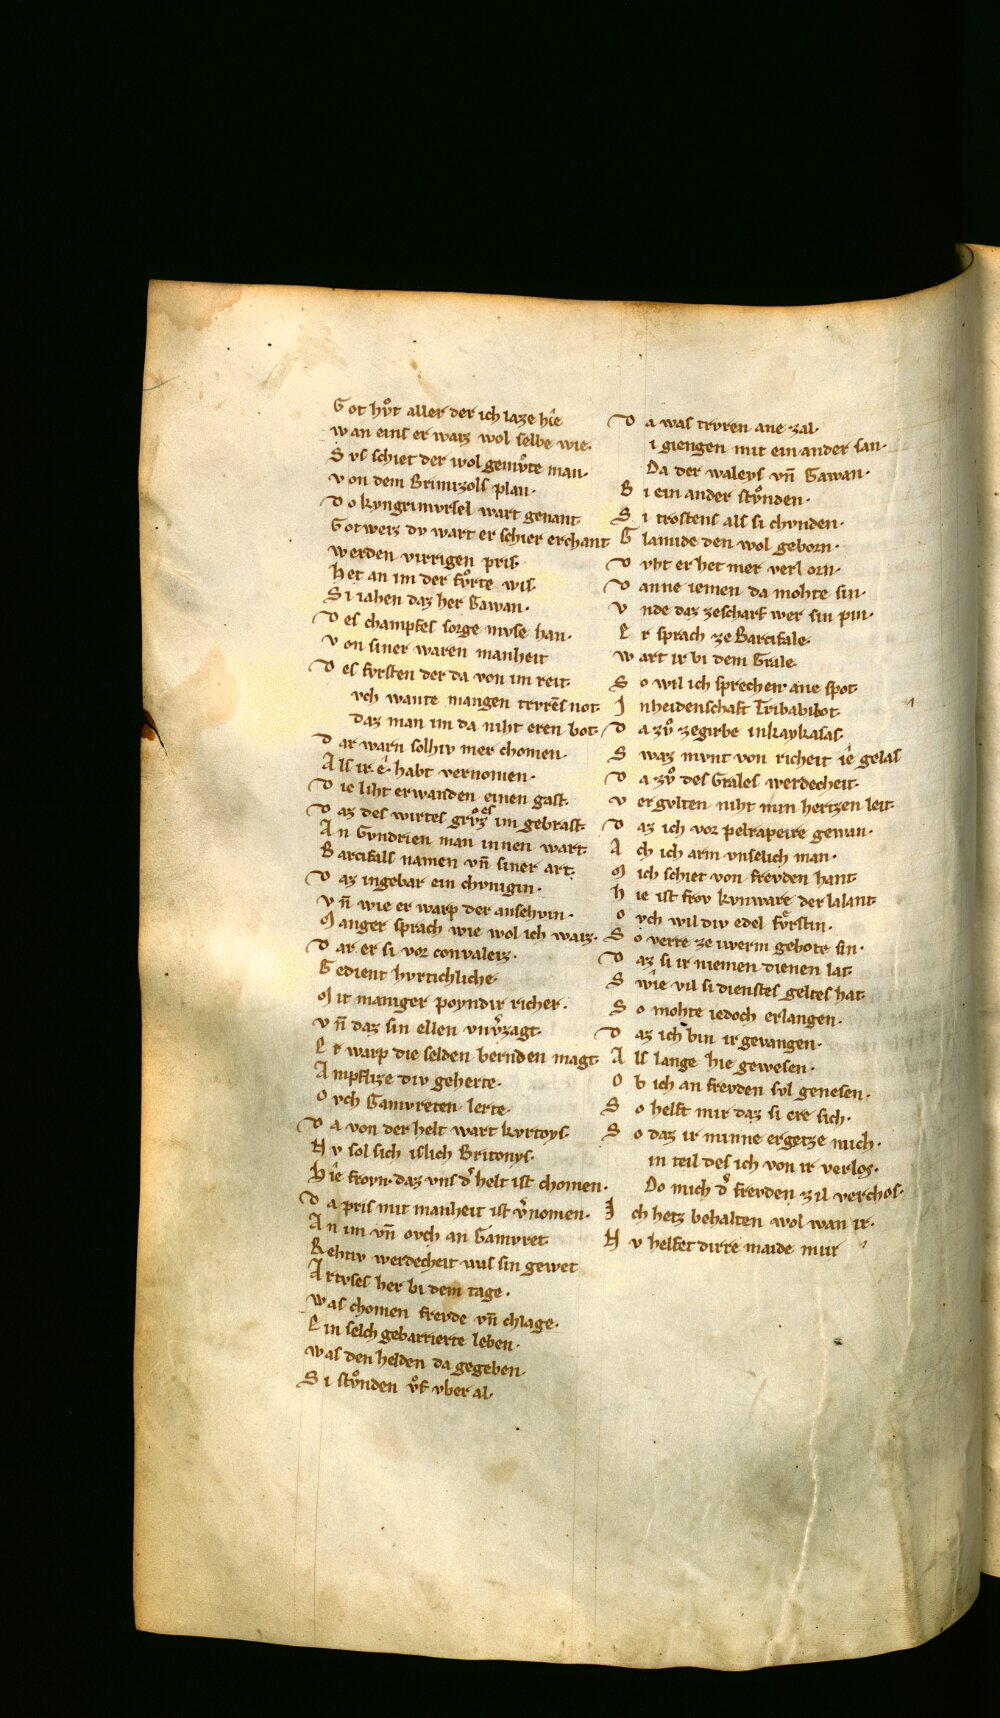 Got hvͦt aller der ich laze hîe
wan eins er waiz wol selbe wie.
Svs schiet der wol gemvͦte man.
von dem Brimizolls plan.
Do kyngrimvrsel wart genant
Gotweiz dv wart er schier erchant
werden virrigen pris.
Het an im der fvͦrte wis.
Si iahen daz her Gawan.
Des champfes sorge mvse han.
von siner waren manheit
Des fvrsten der da von im reit.
vch wante mangen trvrēs not
daz man im da niht eren bot.
Dar warn solhiv mer chomen.
Als ir ê habt vernomen.
Die liht erwanden einen gast.
Daz des wirtes grvͦzes im gebrast.
An Gvndrien man innen wart
Barcifals namen vn̄ siner art.
Daz ingebar ein chvnigin.
vn̄ wie er warp der anschvin.
Manger sprach wie wol ich waiz.
Dar er si vor convaleiz.
Gedient hvrtichliche
Mit maniger poyndir richer.
vn̄ daz sin ellen vnv̾zagt
Er warp die selden bernden magt
Ampflize div geherte.
Ovch Gamvreten lerte.
Da von der helt wart kvrtoys.
Nv sol sich islich Britonys.
Hîe frovn daz vns d̾ helt ist chomen.
Da pris mit manheit ist v̾nomen.
An im vn̄ ovch an Gamvret
Rehtiv werdecheit wis sin gewet
Artvses her bi dem tage.
was chomen frevde vn̄ chlage.
Ein selch gebarrierte leben.
was den helden da gegeben.
Si stvͦnden vͦf vber al.
Da was trvren ane zal.
i giengen mit ein ander san.
Da der waleys vn̄ Gawan.
Bi ein ander stvͦnden.
Si trostens als si chvnden.
Glamide den wol geborn.
Dvht er het mer verlorn.
Danne iemen da mohte sin.
vnde daz zescharf wer sin pin.
Er sprach ze Barcifale.
wart ir bi dem Grale
So wil ich sprechen ane spot
Inheidenschaft Tribabibot.
Da zvͦ zegirbe inkaykasas
Swaz mvnt von richeit îe gelas
Da zvͦ des Grales werdecheit.
vergvlten niht min hertzen leit.
Daz ich vor pelrapeire genan.
Ach ich arm vnselich man.
Mich schiet von frevden hant
hie ist frov kvnware der lalant
ovch wil div edel fvͤrstin.
So verre ze iwerm gebote sin.
Daz si ir niemen dienen lat.
Swîe vil si dienstes geltes hat.
So mohte iedoch erlangen.
Daz ich bin ir gevangen.
Als lange hie gewesen.
Ob ich an frevden svl genesen.
So helft mir daz si ere sich.
So daz ir minne ergetze mich.
in teil des ich von ir verlos.
Do mich d̾ frevden zil verchos.
Ich hetz behalten wol wan ir.
Nv helfet dirre maide mir